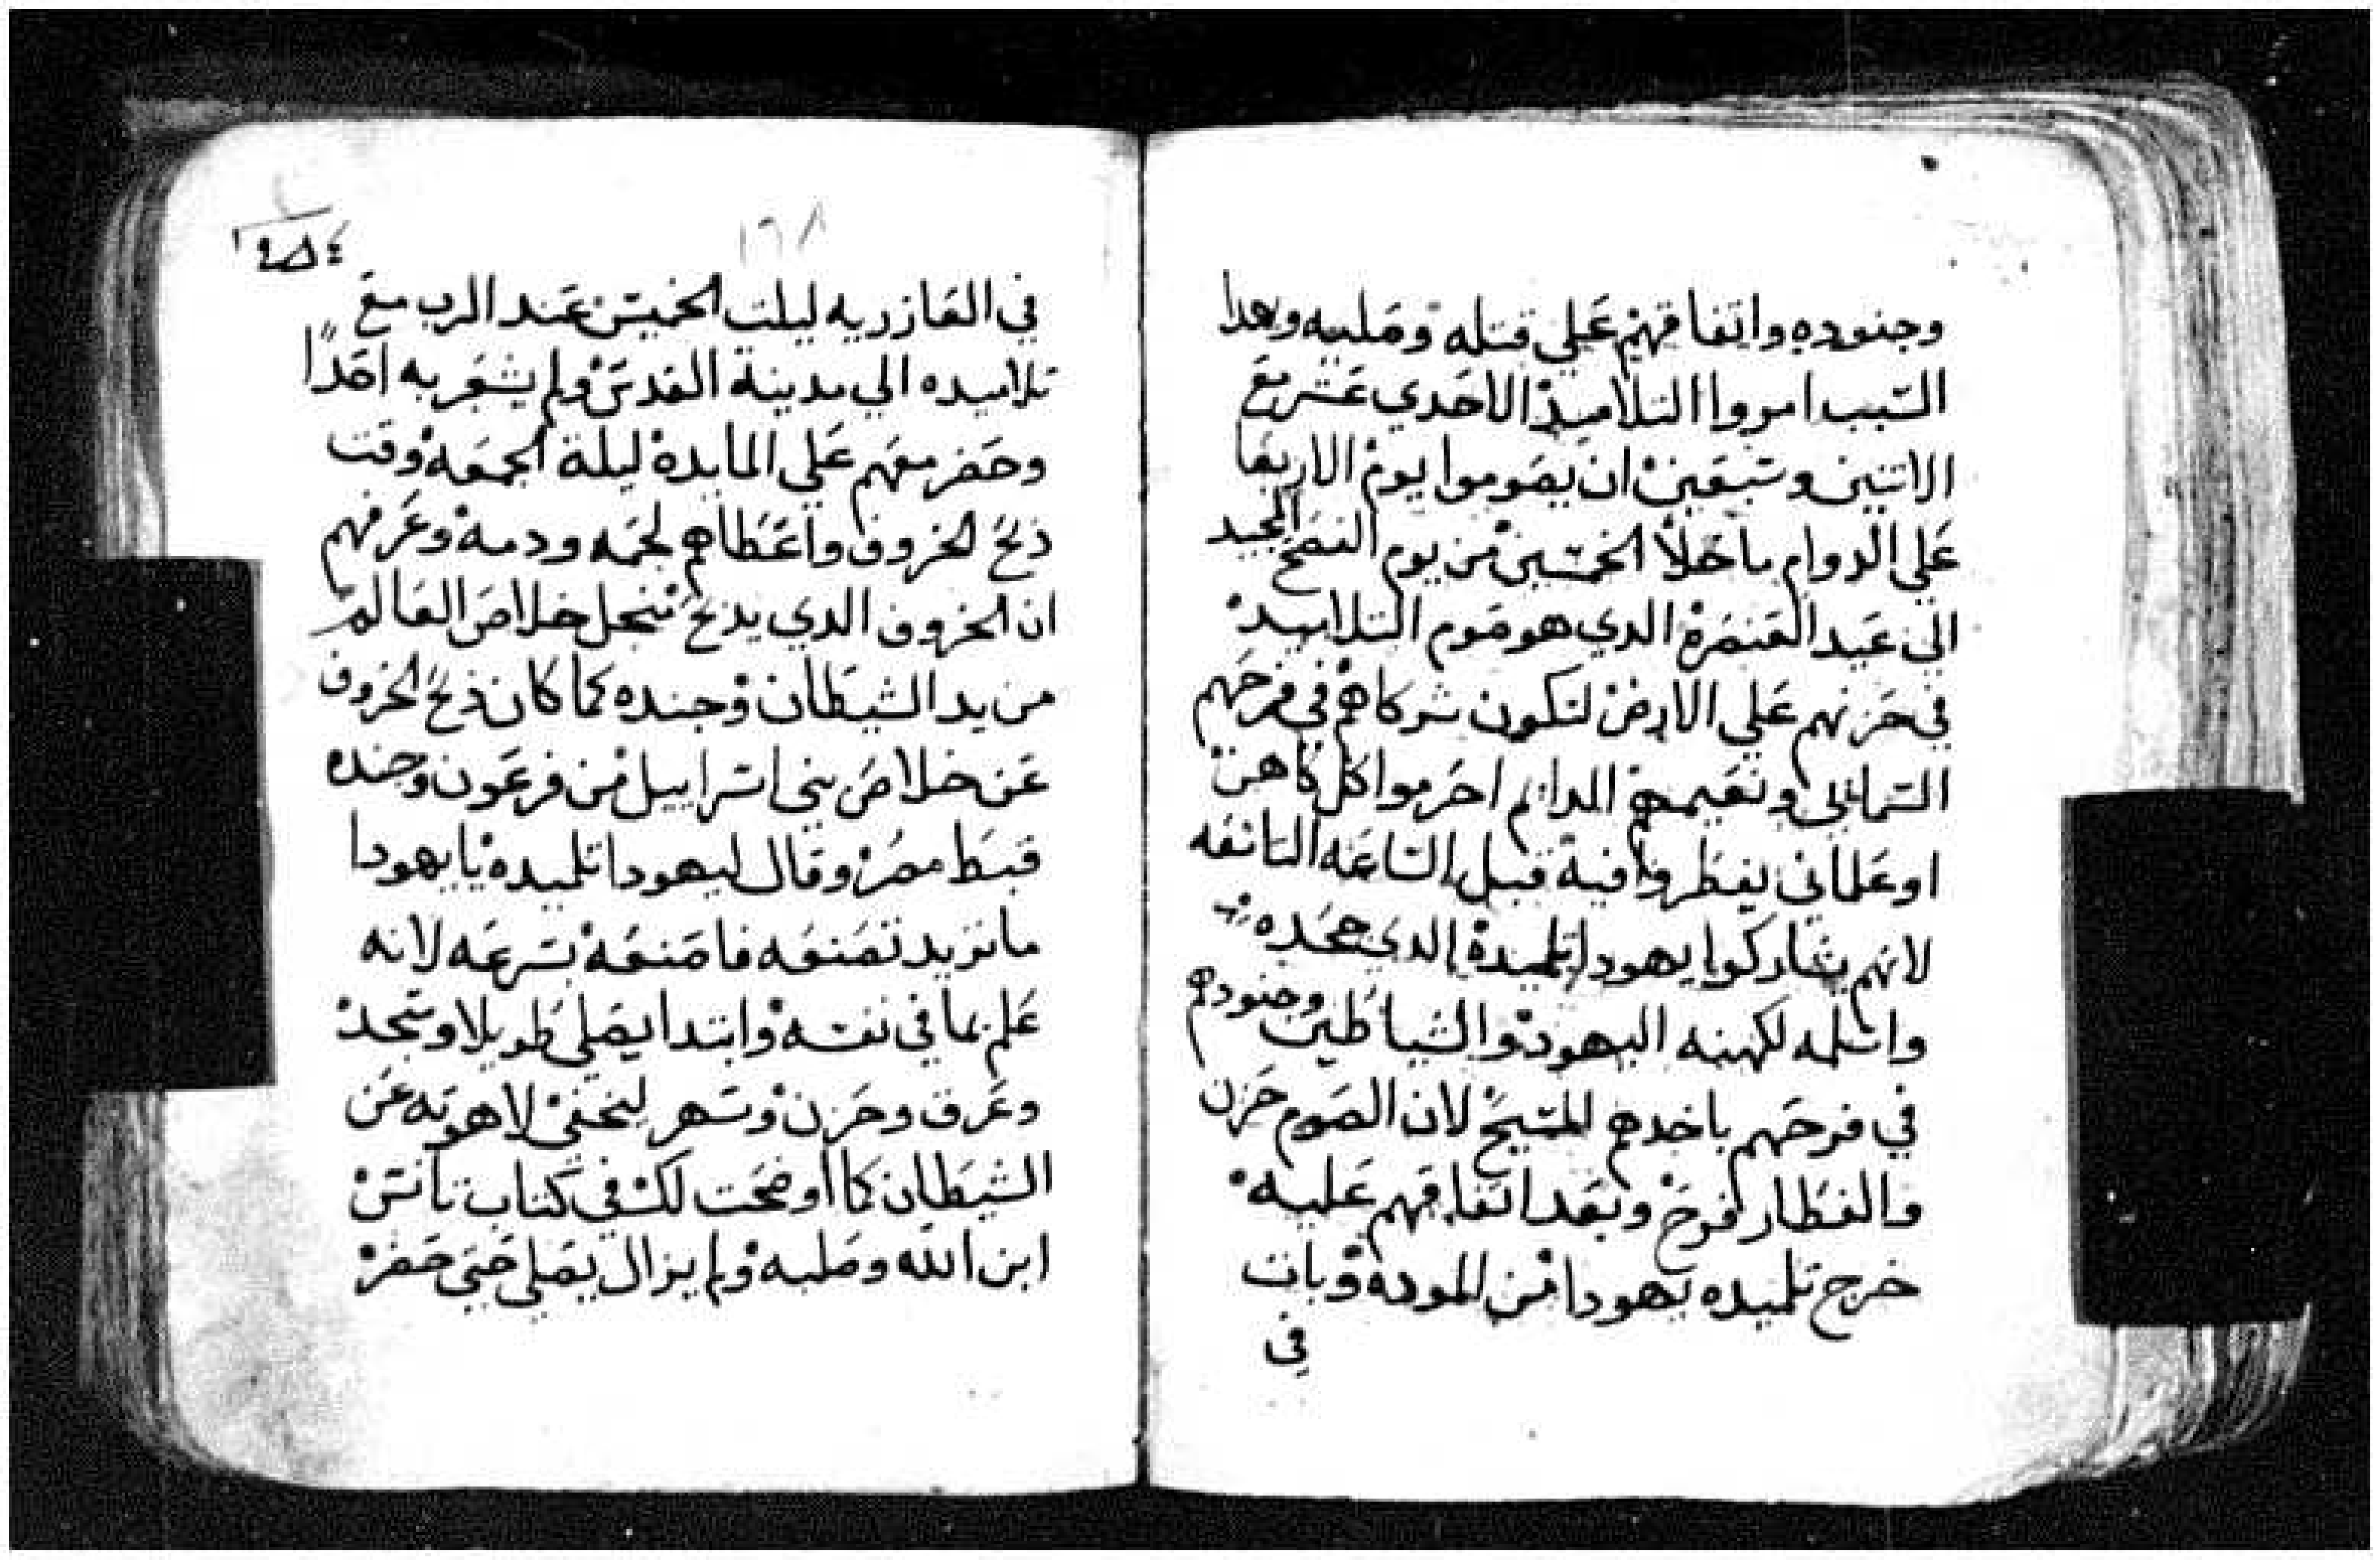 وجنوده واتفاقهم علي قتله وصلبه وهدا
السبب امروا التلاميذ الاحدي عشر مع
الاتنين وسبعين ان يصوموا يوم الاربعا
علي الدوام ماخلا الخمسين من يوم الفصح المجيد
الي عيد العنصرة الدي هو صوم التلاميد
في حزنهم علي الارض لتكون شركاهم في فرحهم
السمايي ونعيمهم الدايم احرموا كل كاهن
او علماني يفطر فيه قبل الساعه التاسعه
لانهم يشاركوا يهودا تلميده الدي جحده
واسلمه لكهنه اليهود والشياطين وجنودهم
في فرحهم باخدهم المسيح لان الصوم حزن
والفطار فرح وبعد اتفاقهم عليه
خرج تلميده يهودا من المودة وبات
في
١٦٨
في العازريه ليلت الخميس عند الرب مع
تلاميده الي مدينة القدس ولم يشعر به احدًا
وحضر معهم علي المايده ليلة الجمعه وقت
ذبح الخروف واعطاهم لحمه ودمه وعرفهم
ان الخروف الدي يدبح منجل خلاص العالم
من يد الشيطان وجنده كما كان ذبح الخروف
عن خلاص بني اسراييل من فرعون وجنده
قبط مصر وقال ليهودا تلميده يا يهودا
ما تريد تصنعه فاصنعه بسرعه لانه
علم بما في نفسه وابتدا يصلي طويلا وسجد
وعرق وحزن وسهر ليخفي لاهوته عن
الشيطان كما اوضحت لك في كتاب تانس
ابن الله وصلبه ولم يزال يصلي حتي حضر